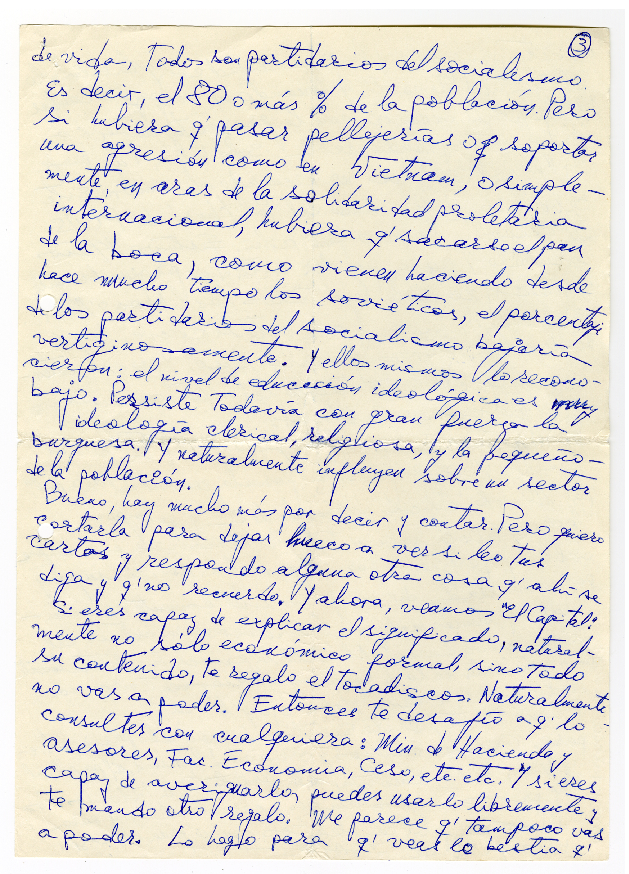 3
de vida, Todos son partidarios del socialismo.
Es decir, el 80 o más % de la población. Pero
si hubiera q' pasar pellejerías o q' soportar
una agresión como en Vietnam, o simple-
mente, en aras de la solidaridad proletaria
internacional, hubiera q' sacarse el pan
de la boca, como vienen haciendo desde
hace mucho tiempo los soviéticos, el porcentaje
de los partidarios del socialismo bajaría
vertiginosamente. Y ellos mismos lo recono-
cieron: el nivel de educación ideológica es muy
bajo. Persiste Todavía con gran fuerza la
ideología clerical, religiosa, y la pequeño-
burguesa. Y naturalmente influyen sobre un sector
de la población.
Bueno, hay mucho más por decir y contar. Pero quiero
cortarla para dejar hueco a ver si leo tus
cartas y respondo alguna otra cosa q' ahí se
diga y q' no recuerdo. Y ahora, veamos "El Capital".
Si eres capaz de explicar el significado, natural-
mente no sólo económico formal, sino todo
su contenido, te regalo el tocadiscos. Naturalmente
no vas a poder. Entonces te desafío a q' lo
consultes con cualquiera: Min. de Hacienda y
asesores, Fac. Economía, Ceso, etc. etc. Y si eres
capaz de averiguarlo, puedes usarlo libremente y
te mando otro regalo. Me parece q' tampoco vas
a poder. Lo hago para q' veas lo bestia q'